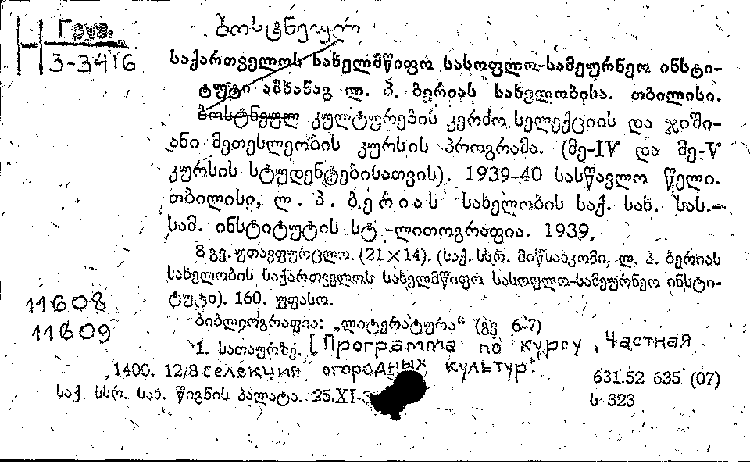 Груз.
3-3416
ბოსტნეულ
საქართველოს სახელმწიფო სასოფლო-სამეურნეო ინსტი-
ტუტი ამხანაგ ლ. პ. ბერიას სახელობისა. თბილისი.
ბოსტნეულ კულტურების კერძო სელექციის და ჯიში-
ანი მეთესლეობის კურსის პროგრამა. (მე-IV და მე-V
კურსის სტუდენტებისათვის). 1939-40 სასწავლო წელი.
თბილისი, ლ. პ. ბერიას სახელობის საქ. სახ. სას.-
სამ. ინსტიტუტის სტ.-ლითოგრაფია. 1939.
8 გვ. უთავფურცლო. (21×14). (საქ. სსრ. მიწსახკომი, ლ. პ. ბერიას
სახელობის საქართველოს სახელმწიფო სასოფლო-სამეურნეო ინსტი-
ტუტი). 160. უფასო.
11608
11609
ბიბლიოგრაფია: „ლიტერატურა“ (გვ. 6-7)
1. სათაურზე. [Программа по курсу „Частная
1400. 12/8 селекция огородных культур“
631.52 635 (07)
საქ. სსრ. სახ. წიგნის პალატა. 25.XI-3
ს 323